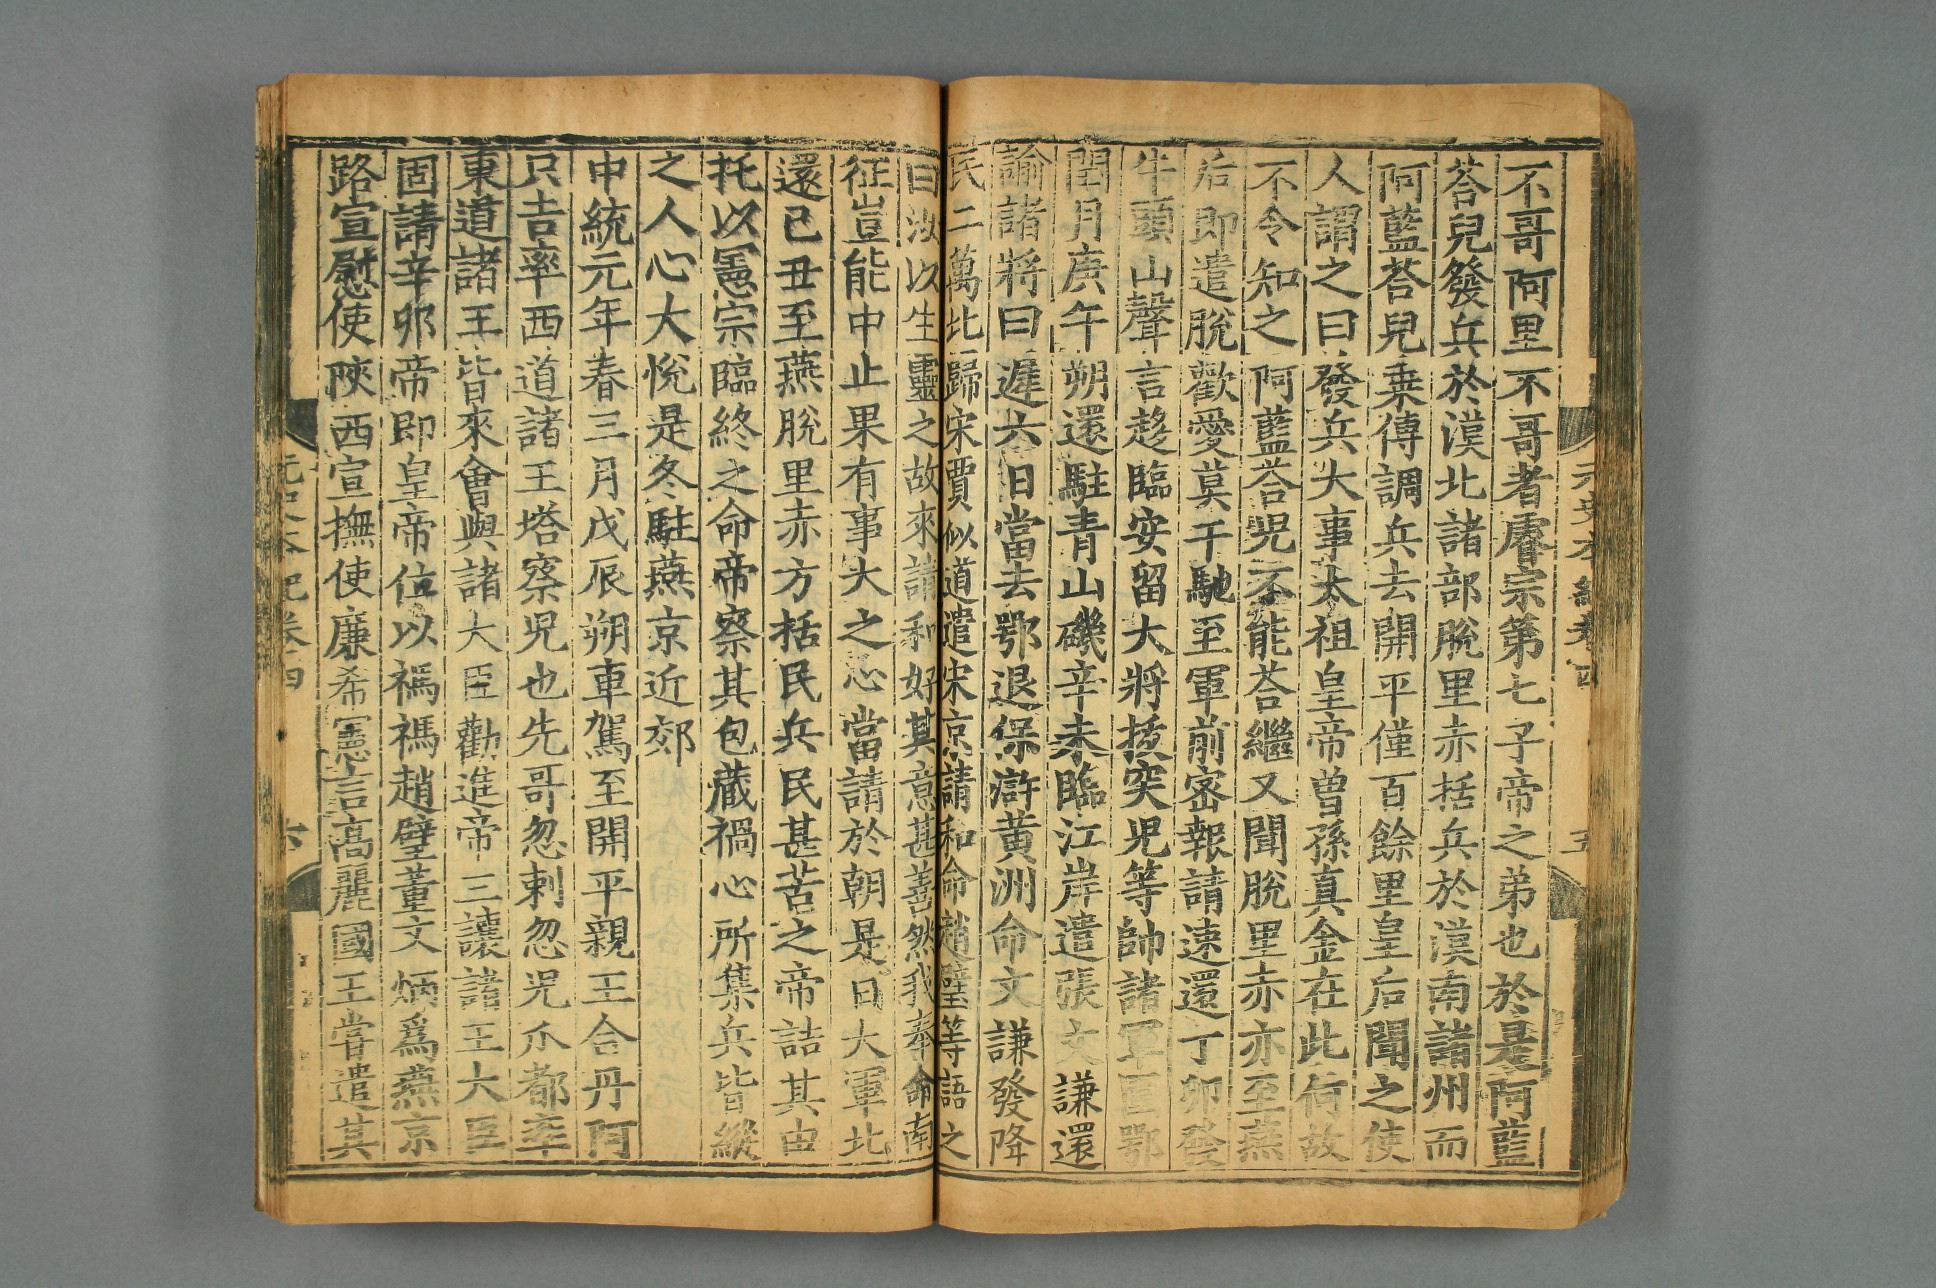 不哥阿里不哥者睿宗第七子帝之弟也於是阿藍
荅兒發兵於漠北諸部脫里赤括兵於漠南諸州而
阿藍荅兒乗傳調兵去開平僅百餘里皇后聞之使
人謂之曰發兵大事太祖皇帝曾孫真金在此何故
不令知之阿藍荅児不能荅繼又聞脫里赤亦至燕
后即遣脫歡愛莫干馳至軍前密報請速還丁卯發
牛頭山聲言趍臨安留大將㧞突児等帥諸軍圍鄂
閏月庚午朔還駐青山磯辛未臨江岸遣張文謙還
諭諸將曰遲六日當去鄂退保滸黃洲命文謙發降
民二萬北歸宋賈似道遣宋京請和命趙璧等語之
曰汝以生靈之故來請和好其意甚善然我奉命南
征豈能中止果有事大之心當請於朝是日大軍北
還己丑至燕脫里赤方括民兵民甚苦之帝詰其由
托以憲宗臨終之命帝察其包藏禍心所集兵皆縱
之人心大悅是冬駐燕京近郊
中統元年春三月戊辰朔車駕至開平親王合丹阿
只吉率西道諸王塔察児也先哥忽剌忽児爪都率
東道諸王皆來會與諸大臣勸進帝三讓諸王大臣
固請辛卯帝即皇帝位以禡禡趙璧董文炳爲燕京
路宣慰使陝西宣撫使廉希憲言高麗國王嘗遣其
元史本紀卷四
六
元史本紀卷四
五